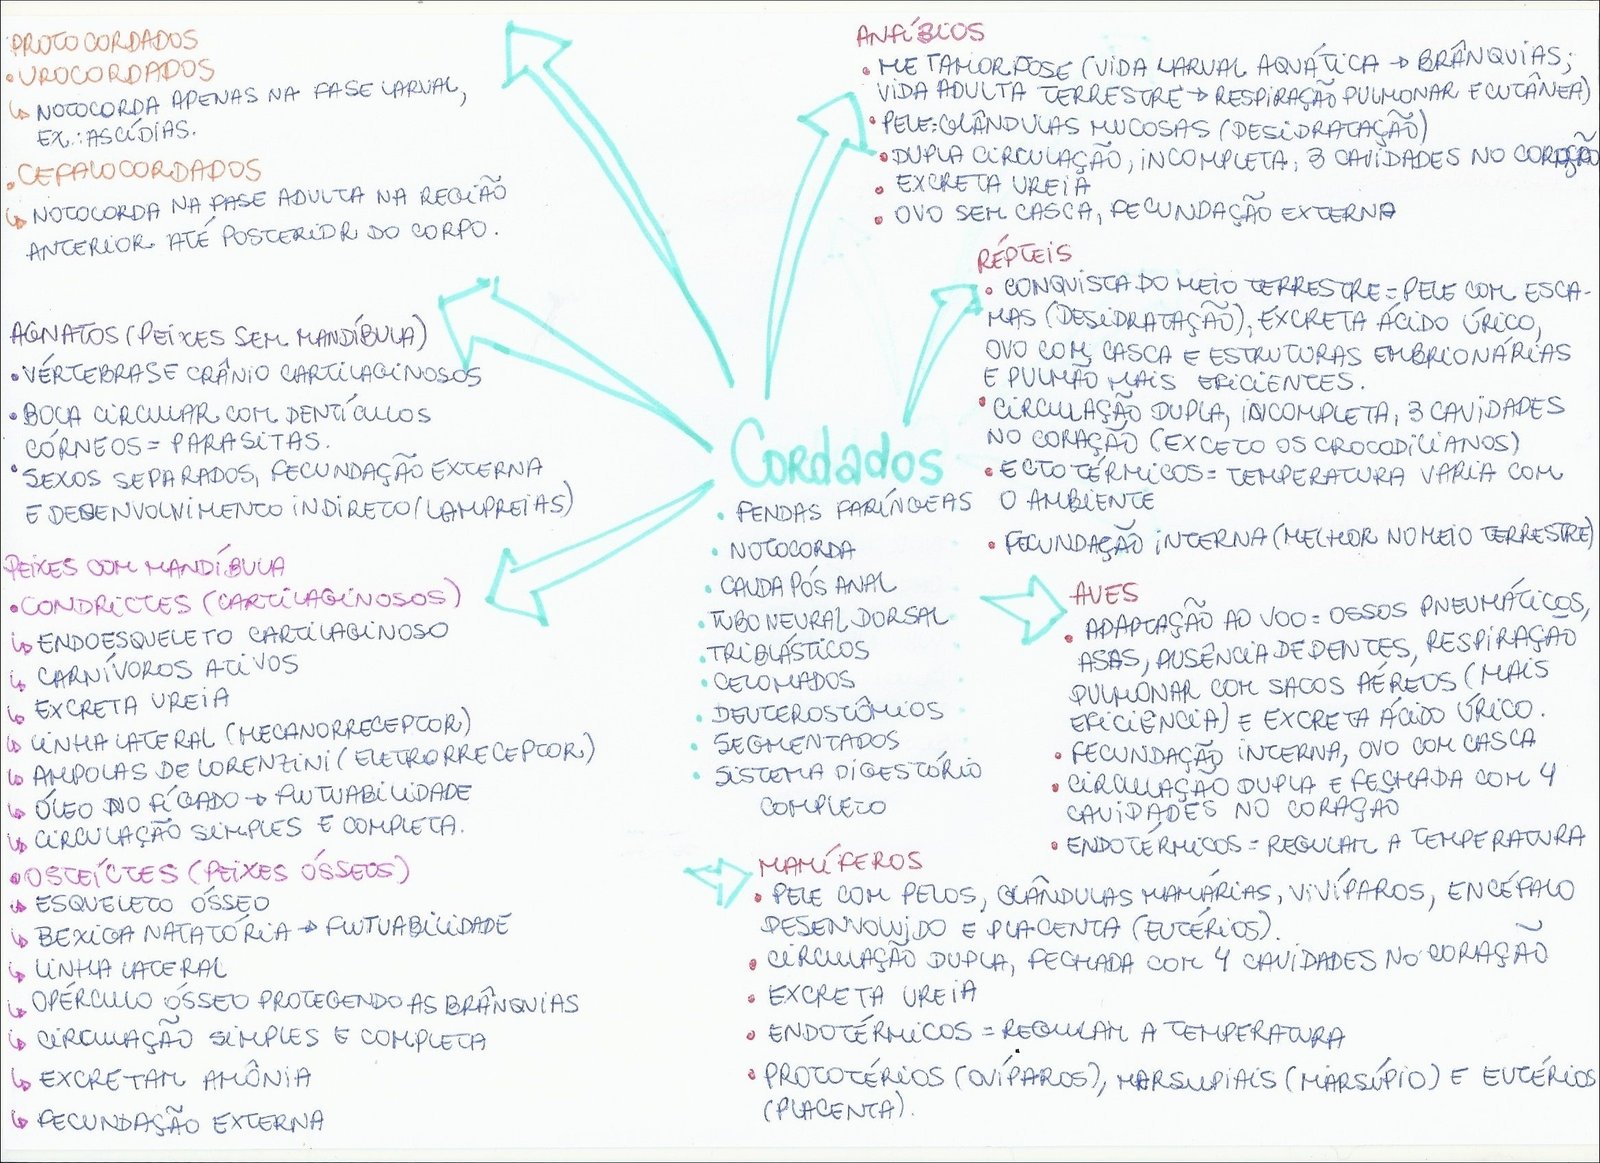 PROTOCORDADOS
• UROCORDADOS
↳ NOTOCORDA APENAS NA FASE LARVAL,
EX.: ASCÍDIAS.
• CEFALOCORDADOS
↳ NOTOCORDA NA FASE ADULTA NA REGIÃO
ANTERIOR ATÉ POSTERIOR DO CORPO.
AGNATOS (PEIXES SEM MANDÍBULA)
• VÉRTEBRAS E CRÂNIO CARTILAGINOSOS
• BOCA CIRCULAR COM DENTÍCULOS
CÓRNEOS = PARASITAS.
• SEXOS SEPARADOS, FECUNDAÇÃO EXTERNA
E DESENVOLVIMENTO INDIRETO (LAMPREIAS)
PEIXES COM MANDÍBULA
• CONDRICTES (CARTILAGINOSOS)
↳ ENDOESQUELETO CARTILAGINOSO
↳ CARNÍVOROS ATIVOS
↳ EXCRETA UREIA
↳ LINHA LATERAL (MECANORRECEPTOR)
↳ AMPOLAS DE LORENZINI (ELETRORRECEPTOR)
↳ ÓLEO NO FÍGADO → FLUTUABILIDADE
↳ CIRCULAÇÃO SIMPLES E COMPLETA.
• OSTEÍCTES (PEIXES ÓSSEOS)
↳ ESQUELETO ÓSSEO
↳ BEXIGA NATATÓRIA → FLUTUABILIDADE
↳ LINHA LATERAL
↳ OPÉRCULO ÓSSEO PROTEGENDO AS BRÂNQUIAS
↳ CIRCULAÇÃO SIMPLES E COMPLETA
↳ EXCRETAM AMÔNIA
↳ FECUNDAÇÃO EXTERNA
Cordados
• FENDAS FARÍNGEAS
• NOTOCORDA
• CAUDA PÓS ANAL
• TUBO NEURAL DORSAL
• TRIBLÁSTICOS
• CELOMADOS
• DEUTEROSTÔMIOS
• SEGMENTADOS
• SISTEMA DIGESTÓRIO
COMPLETO
ANFÍBIOS
• METAMORFOSE (VIDA LARVAL AQUÁTICA → BRÂNQUIAS;
VIDA ADULTA TERRESTRE → RESPIRAÇÃO PULMONAR E CUTÂNEA)
• PELE: GLÂNDULAS MUCOSAS (DESIDRATAÇÃO)
• DUPLA CIRCULAÇÃO, INCOMPLETA, 3 CAVIDADES NO CORAÇÃO
• EXCRETA UREIA
• OVO SEM CASCA, FECUNDAÇÃO EXTERNA
RÉPTEIS
• CONQUISTA DO MEIO TERRESTRE = PELE COM ESCA-
MAS (DESIDRATAÇÃO), EXCRETA ÁCIDO ÚRICO,
OVO COM CASCA E ESTRUTURAS EMBRIONÁRIAS
E PULMÃO MAIS EFICIENTES.
• CIRCULAÇÃO DUPLA, INCOMPLETA, 3 CAVIDADES
NO CORAÇÃO (EXCETO OS CROCODILIANOS)
• ECTOTÉRMICOS = TEMPERATURA VARIA COM
O AMBIENTE
• FECUNDAÇÃO INTERNA (MELHOR NO MEIO TERRESTRE)
AVES
• ADAPTAÇÃO AO VOO = OSSOS PNEUMÁTICOS,
ASAS, AUSÊNCIA DE DENTES, RESPIRAÇÃO
PULMONAR COM SACOS AÉREOS (MAIS
EFICIÊNCIA) E EXCRETA ÁCIDO ÚRICO.
• FECUNDAÇÃO INTERNA, OVO COM CASCA
• CIRCULAÇÃO DUPLA E FECHADA COM 4
CAVIDADES NO CORAÇÃO
• ENDOTÉRMICOS = REGULAM A TEMPERATURA
MAMÍFEROS
• PELE COM PELOS, GLÂNDULAS MAMÁRIAS, VIVÍPAROS, ENCÉFALO
DESENVOLVIDO E PLACENTA (EUTÉRIOS).
• CIRCULAÇÃO DUPLA, FECHADA COM 4 CAVIDADES NO CORAÇÃO
• EXCRETA UREIA
• ENDOTÉRMICOS = REGULAM A TEMPERATURA
• PROTOTÉRIOS (OVÍPAROS), MARSUPIAIS (MARSÚPIO) E EUTÉRIOS
(PLACENTA).